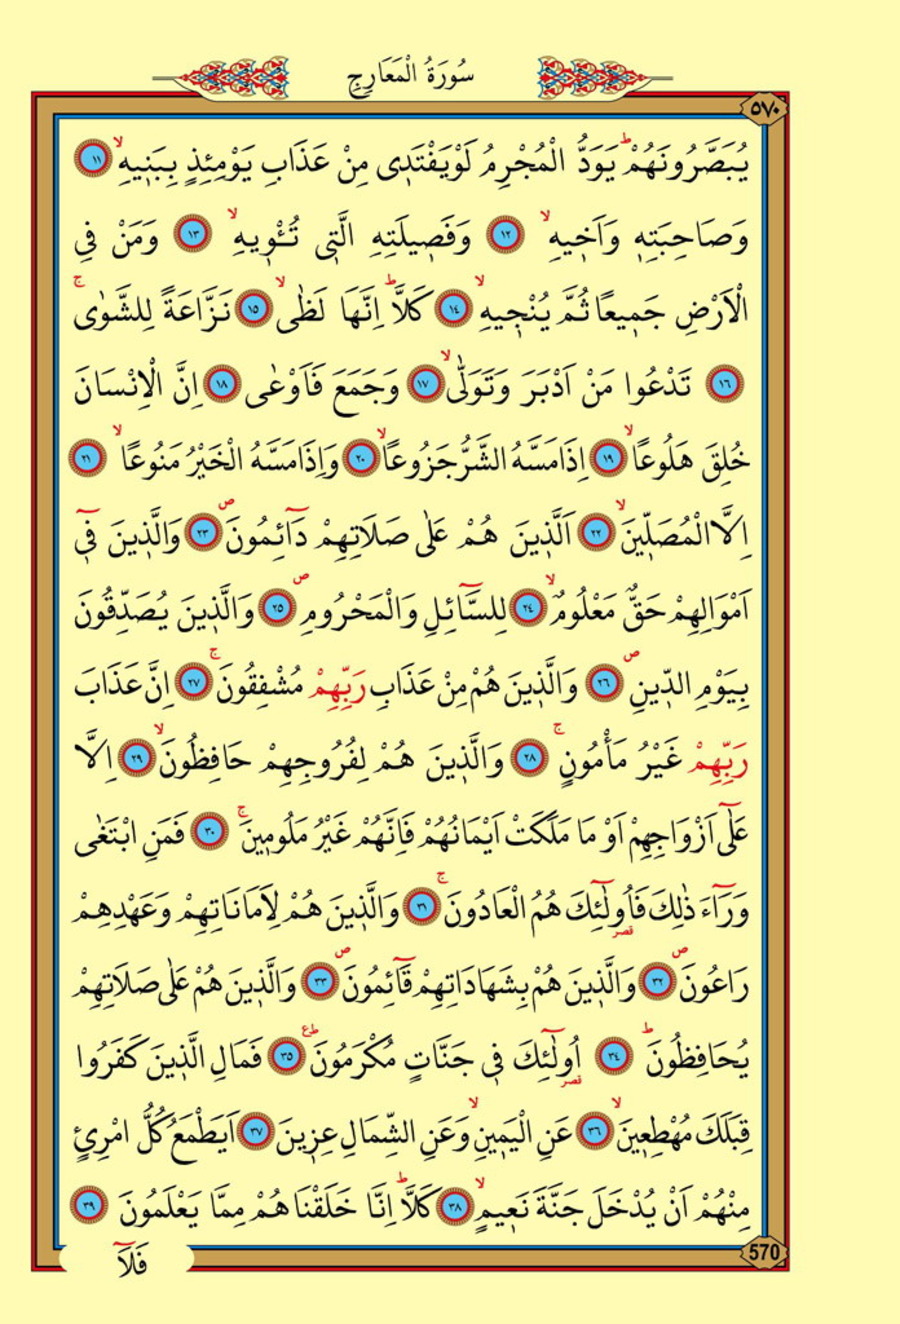 سُورَةُ الْمَعَارِجِ
٥٧٠
يُبَصَّرُونَهُمْ ؕ يَوَدُّ الْمُجْرِمُ لَوْيَفْتَدٖى مِنْ عَذَابِ يَوْمِئِذٍ بِبَنٖيهِ ۙ ﴿١١﴾
وَصَاحِبَتِهٖ وَاَخٖيهِ ۙ ﴿١٢﴾ وَفَصٖيلَتِهِ الَّتٖى تُـْٔوٖيهِ ۙ ﴿١٣﴾ وَمَنْ فِى
الْاَرْضِ جَمٖيعًا ثُمَّ يُنْجٖيهِ ۙ ﴿١٤﴾ كَلَّا ؕ اِنَّهَا لَظٰى ۙ ﴿١٥﴾ نَزَّاعَةً لِلشَّوٰى ۚ
﴿١٦﴾ تَدْعُوا مَنْ اَدْبَرَ وَتَوَلّٰى ۙ ﴿١٧﴾ وَجَمَعَ فَاَوْعٰى ﴿١٨﴾ اِنَّ الْاِنْسَانَ
خُلِقَ هَلُوعًا ۙ ﴿١٩﴾ اِذَامَسَّهُ الشَّرُّجَزُوعًا ۙ ﴿٢٠﴾ وَاِذَامَسَّهُ الْخَيْرُ مَنُوعًا ۙ ﴿٢١﴾
اِلَّاالْمُصَلّٖينَ ۙ ﴿٢٢﴾ اَلَّذٖينَ هُمْ عَلٰى صَلَاتِهِمْ دَٓائِمُونَ ۖ ﴿٢٣﴾ وَالَّذٖينَ فٖٓى
اَمْوَالِهِمْ حَقٌّ مَعْلُومٌ ۙ ﴿٢٤﴾ لِلسَّٓائِلِ وَالْمَحْرُومِ ۖ ﴿٢٥﴾ وَالَّذٖينَ يُصَدِّقُونَ
بِيَوْمِ الدّٖينِ ۖ ﴿٢٦﴾ وَالَّذٖينَ هُمْ مِنْ عَذَابِ رَبِّهِمْ مُشْفِقُونَ ۚ ﴿٢٧﴾ اِنَّ عَذَابَ
رَبِّهِمْ غَيْرُ مَأْمُونٍ ۚ ﴿٢٨﴾ وَالَّذٖينَ هُمْ لِفُرُوجِهِمْ حَافِظُونَ ۙ ﴿٢٩﴾ اِلَّا
عَلٰٓى اَزْوَاجِهِمْ اَوْ مَا مَلَكَتْ اَيْمَانُهُمْ فَاِنَّهُمْ غَيْرُ مَلُومٖينَ ۚ ﴿٣٠﴾ فَمَنِ ابْتَغٰى
وَرَٓاءَ ذٰلِكَ فَاُولٰٓئِكَ هُمُ الْعَادُونَ ۚ ﴿٣١﴾ وَالَّذٖينَ هُمْ لِاَمَانَاتِهِمْ وَعَهْدِهِمْ
قصر
رَاعُونَ ۖ ﴿٣٢﴾ وَالَّذٖينَ هُمْ بِشَهَادَاتِهِمْ قَٓائِمُونَ ۖ ﴿٣٣﴾ وَالَّذٖينَ هُمْ عَلٰى صَلَاتِهِمْ
يُحَافِظُونَ ؕ ﴿٣٤﴾ اُولٰٓئِكَ فٖى جَنَّاتٍ مُكْرَمُونَ ؕع ﴿٣٥﴾ فَمَالِ الَّذٖينَ كَفَرُوا
قصر
قِبَلَكَ مُهْطِعٖينَ ۙ ﴿٣٦﴾ عَنِ الْيَمٖينِ ۙ وَعَنِ الشِّمَالِ عِزٖينَ ﴿٣٧﴾ اَيَطْمَعُ كُلُّ امْرِئٍ
مِنْهُمْ اَنْ يُدْخَلَ جَنَّةَ نَعٖيمٍ ۙ ﴿٣٨﴾ كَلَّا ؕ اِنَّا خَلَقْنَا هُمْ مِمَّا يَعْلَمُونَ ﴿٣٩﴾
570
فَلَٓا